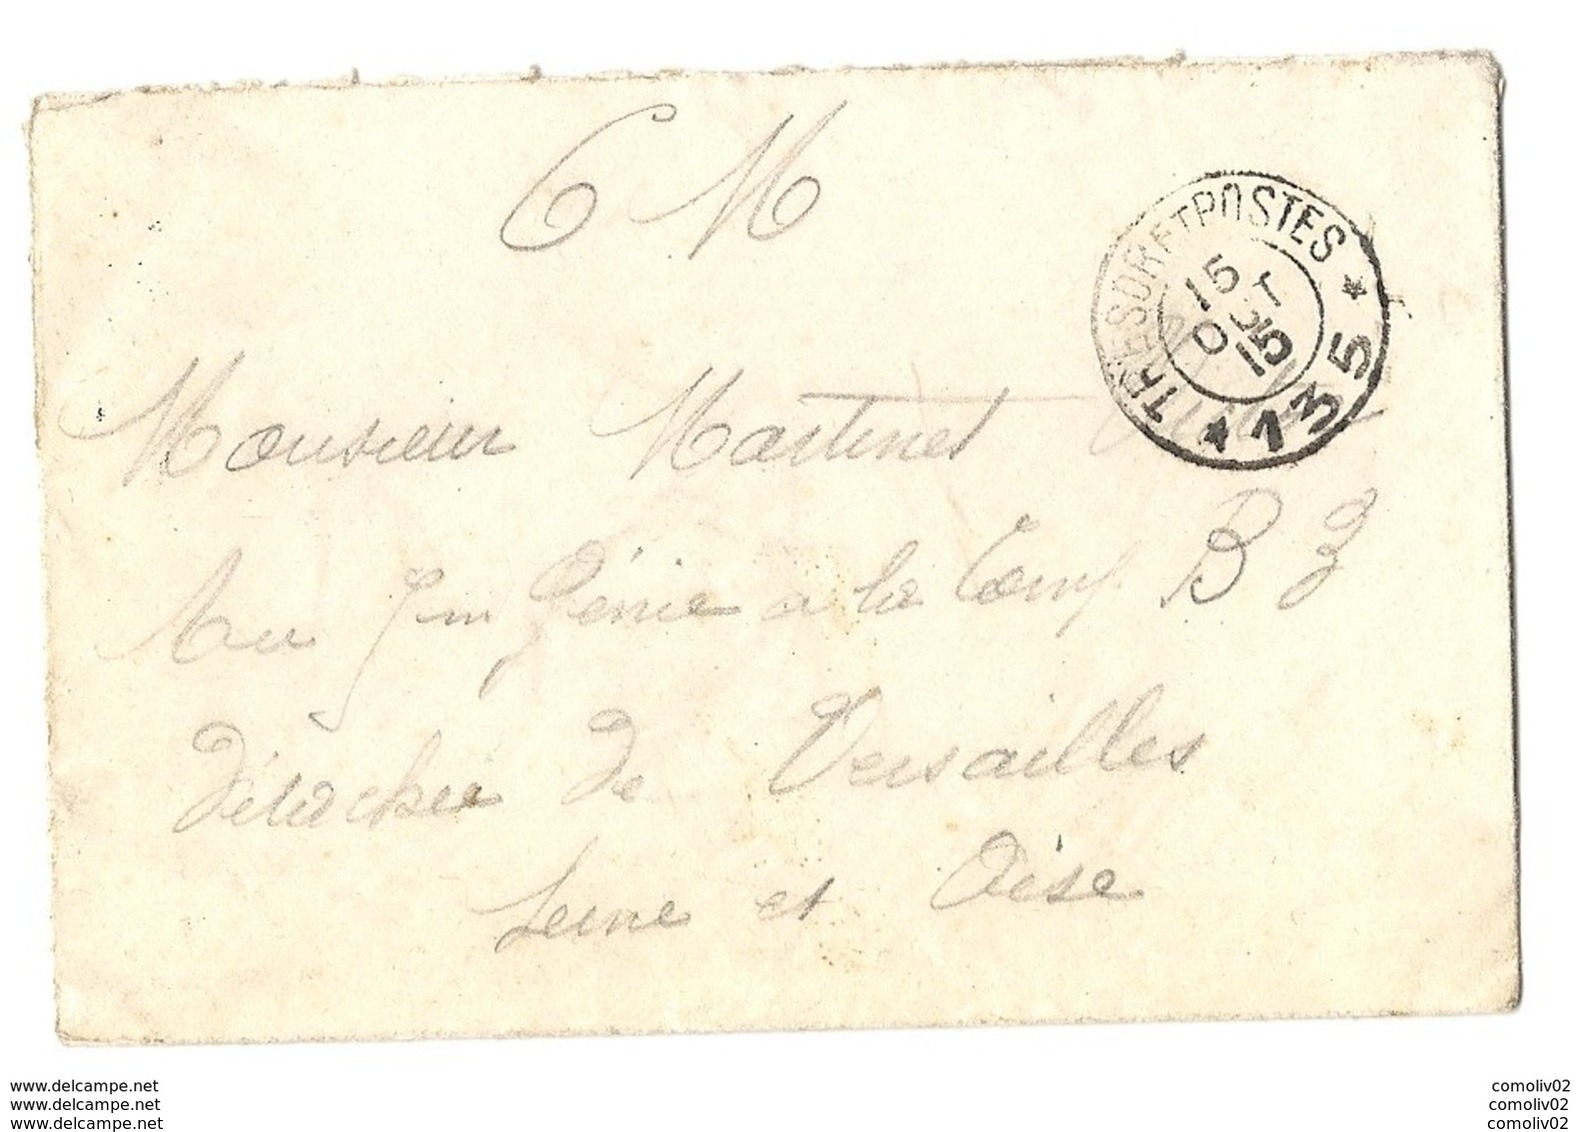 C M
TRESOR ET POSTES
15
OCT
15
* 135 *
Monsieur Martinet
Au Génie a la Comp. B
Détachée de Versailles
Seine et Oise
www.delcampe.net
www.delcampe.net
www.delcampe.net
comoliv02
comoliv02
comoliv02